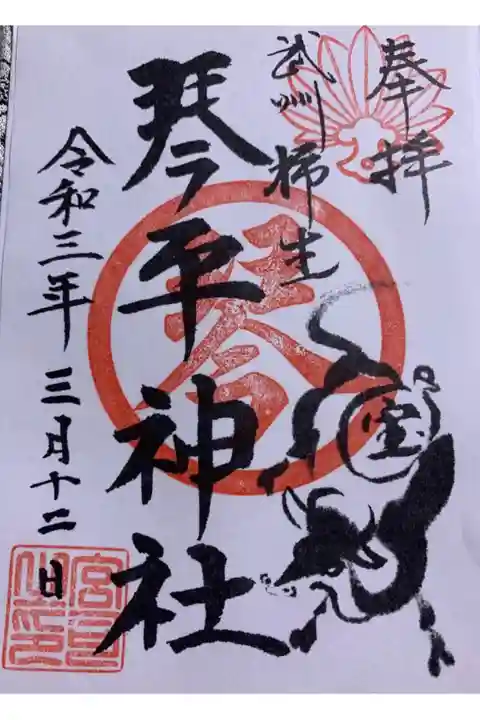 奉拝
武州柿生
琴平神社
令和三年三月十二日
琴
宝
宮司之印